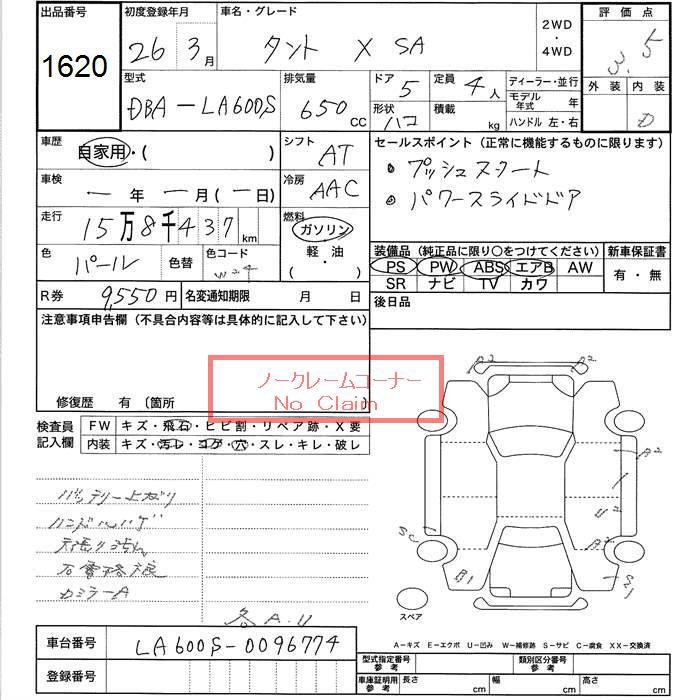 出品番号 初度登録年月 車名・グレード 2WD・4WD 評価点
1620 26年 3月 タント X SA 3.5
型式 排気量 ドア 5 定員 4人 ディーラー・並行 外装 内装
DBA-LA600S 650CC 形状 ハコ 積載 kg モデル年式 年 D
ハンドル 左・右
車歴 自家用・( ) シフト AT セールスポイント(正常に機能するものに限ります)
・プッシュスタート
車検 ー年ー月(ー日) 冷房 AAC ・パワースライドドア
走行 15万8千437km 燃料 ガソリン・軽・油( )
装備品(純正品に限り〇をつけてください) 新車保証書
色 パール 色替 色コード W24 PS PW ABS エアB AW 有・無
SR ナビ TV カワ
R券 9,550円 名変通知期限 月 日 後日品
注意事項申告欄(不具合内容等は具体的に記入して下さい)
ノークレームコーナー
No Claim
修復歴 有 (箇所 )
検査員記入欄 FW キズ・飛石・ヒビ割・リペア跡・X要
内装 キズ・汚レ・コゲ・穴・スレ・キレ・破レ
バッテリー上がり
ハンドルハゲ
天張り汚れ
カミラーA
各A.U
A2 A2
A2
U2
A2
SC
B1 S1
スペア
A-キズ E-エクボ U-凹み W-補修跡 S-サビ C-腐食 XX-交換済
車台番号 LA600S-0096774
登録番号
型式指定番号 参考 類別区分番号 参考
車庫証明用 参考 長さ cm 幅 cm 高さ cm